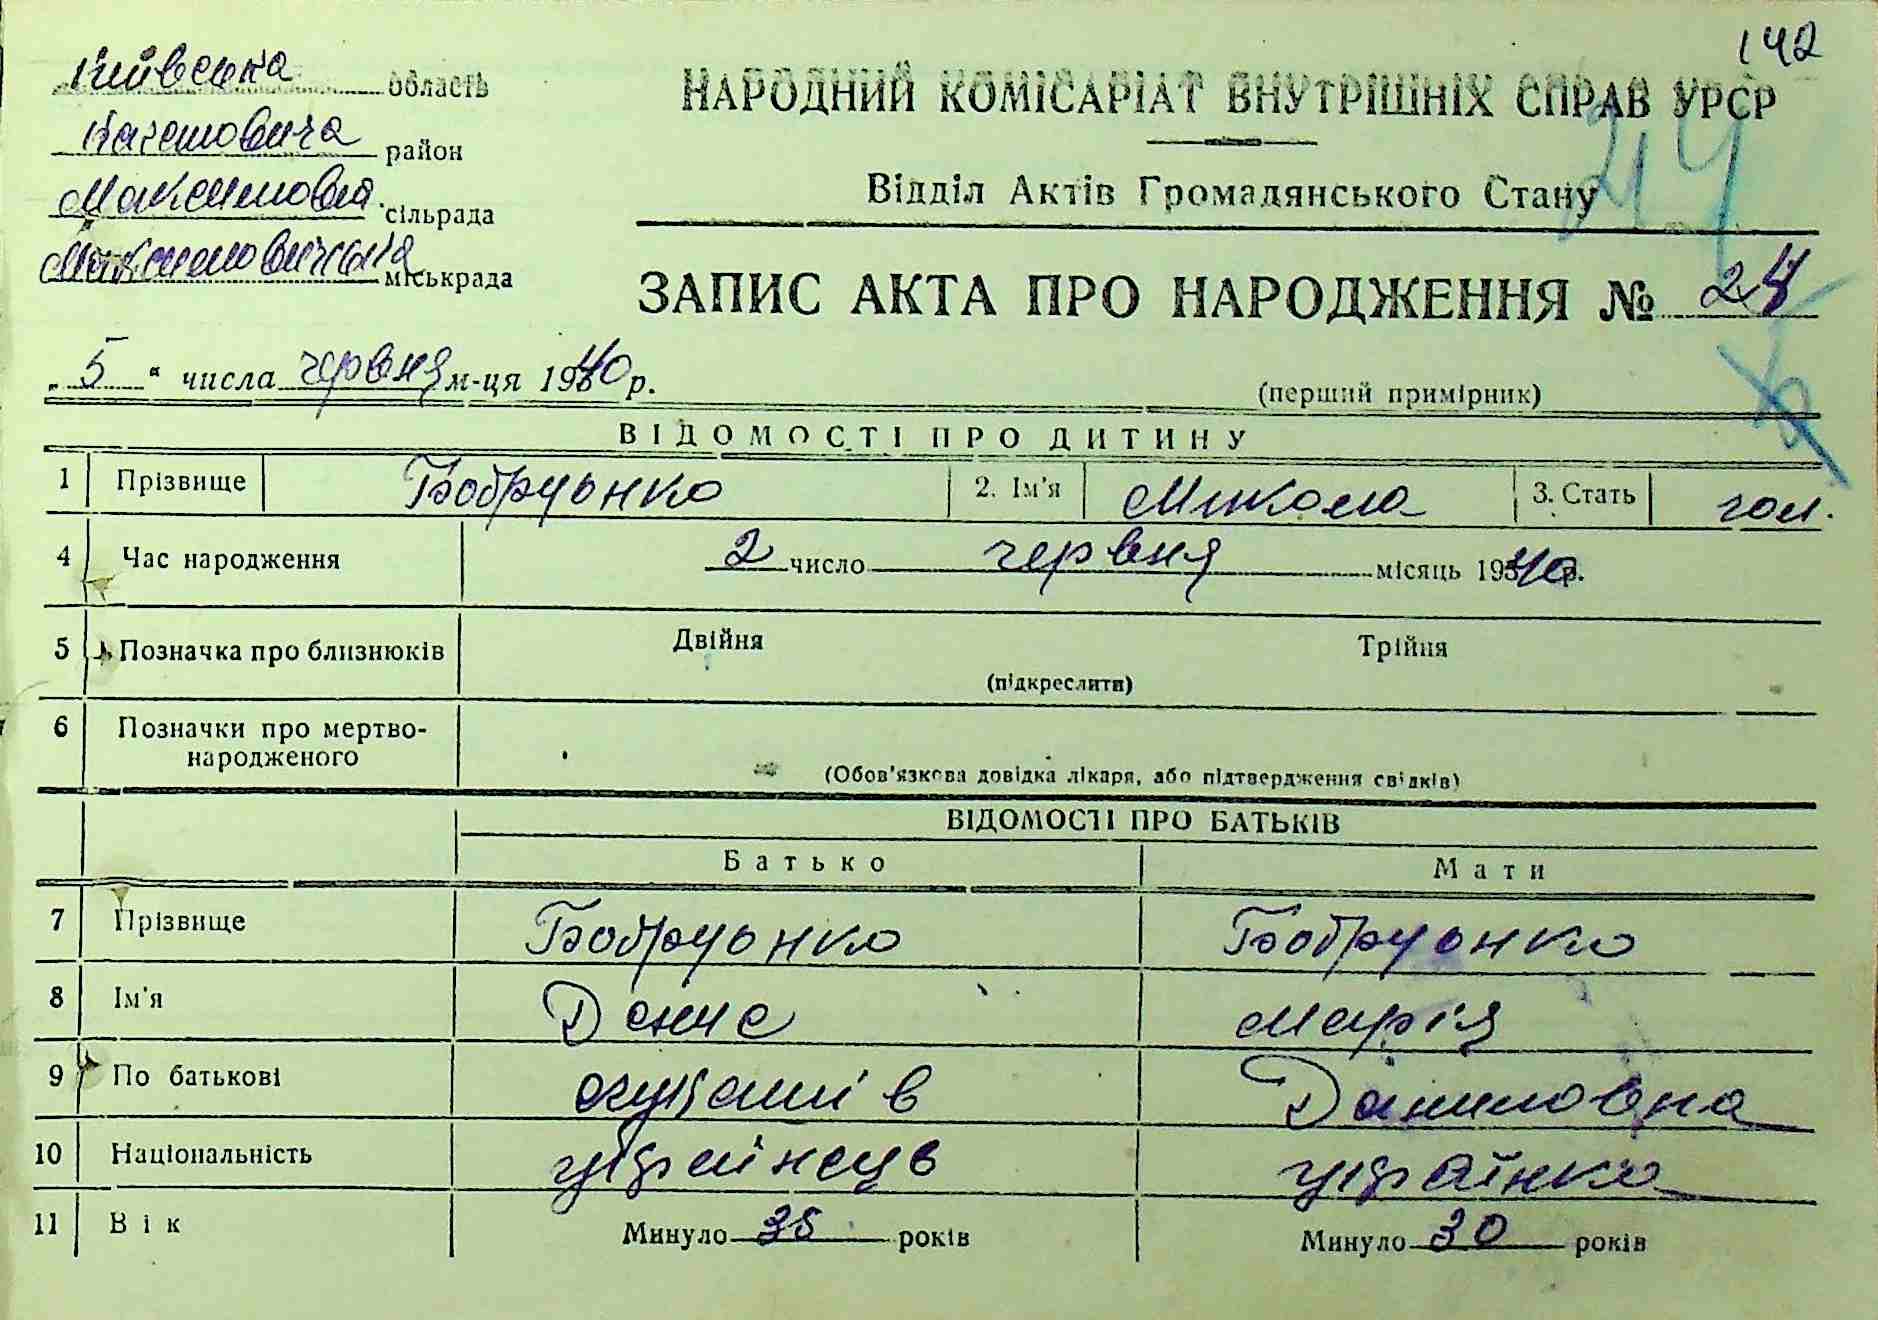 142
Київська область
НАРОДНИЙ КОМІСАРІАТ ВНУТРІШНІХ СПРАВ УРСР
Кагановича район
Відділ Актів Громадянського Стану
24
Максимович. сільрада
Максимовичська міськрада
ЗАПИС АКТА ПРО НАРОДЖЕННЯ № 24
„5“ числа червня м-ця 1940 р.
(перший примірник)
ВІДОМОСТІ ПРО ДИТИНУ
1 Прізвище Бобруонко 2. Ім'я Микола 3. Стать чол.
4 Час народження 2 число червня місяць 1940 р.
5 Позначка про близнюків Двійня Трійня
(підкреслити)
6 Позначки про мертво-
народженого
(Обов'язкова довідка лікаря, або підтвердження свідків)
ВІДОМОСТІ ПРО БАТЬКІВ
Батько Мати
7 Прізвище Бобруонко Бобруонко
8 Ім'я Денис Марія
9 По батькові Даниловна
10 Національність українець українка
11 Вік Минуло 35 років Минуло 30 років